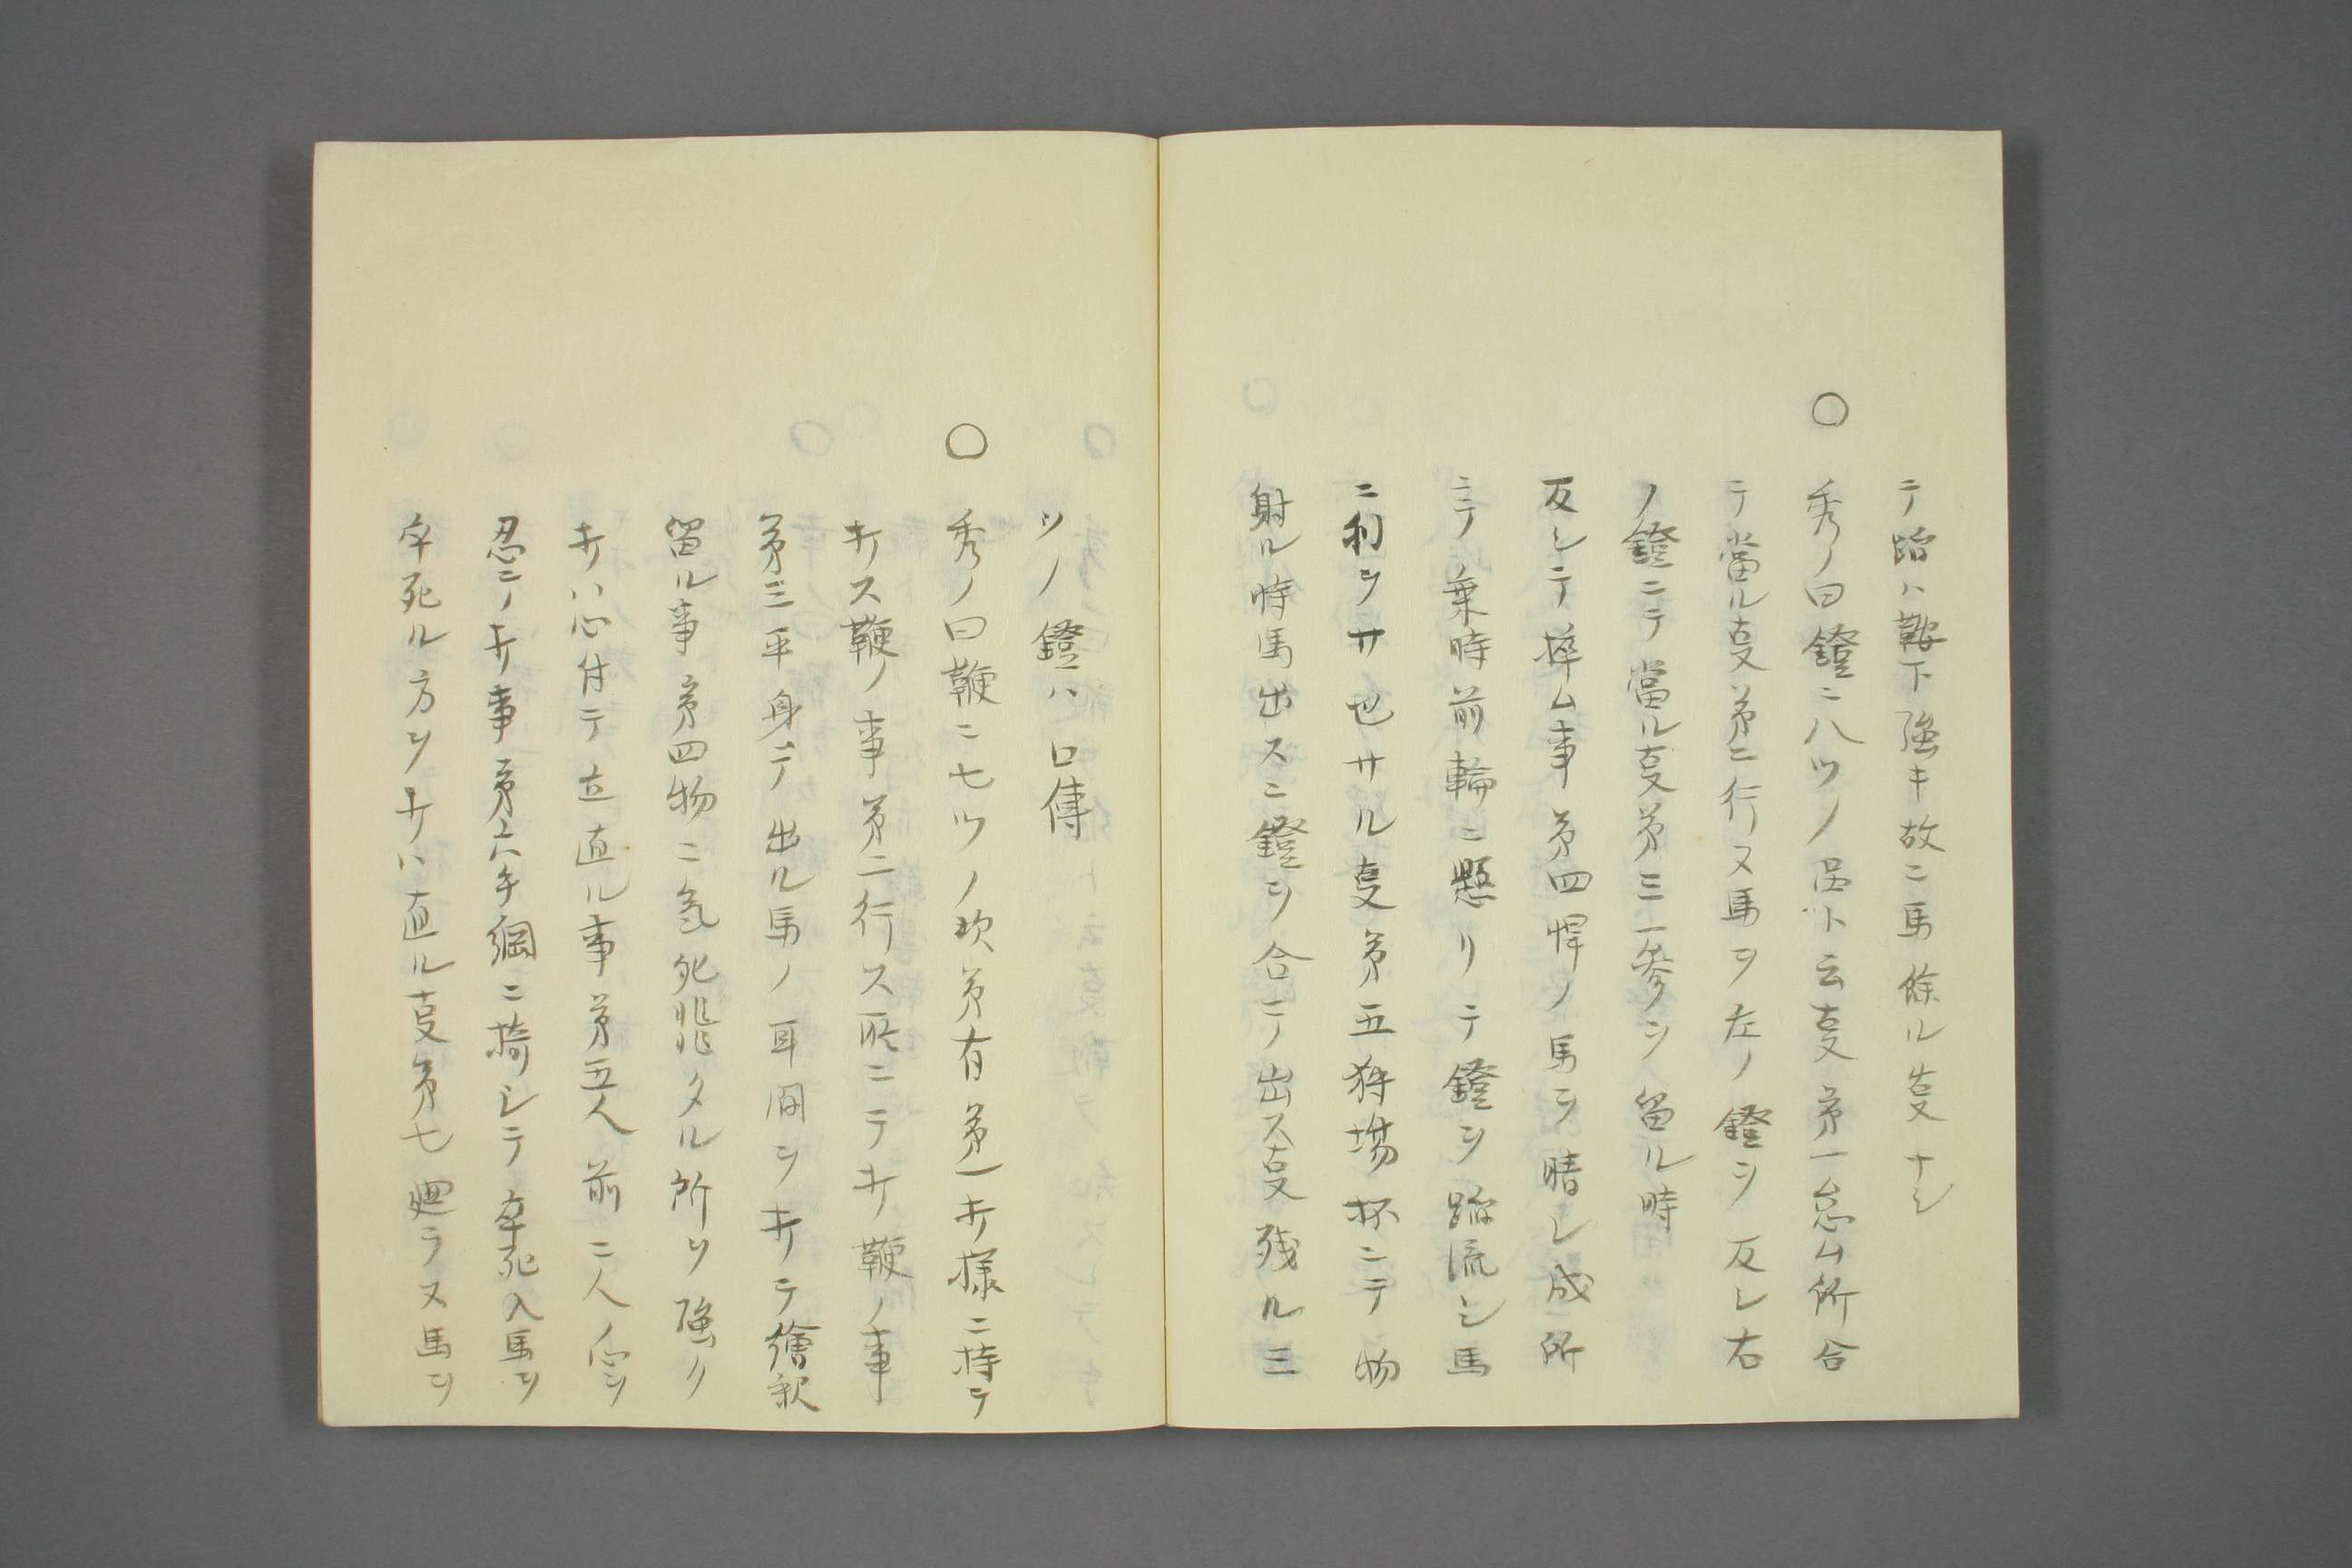 テ蹈ハ鞍下強キ故ニ馬餘ル叓ナシ
〇 秀ノ曰鐙ニ八ツノ品下云叓第一怠ム所合
テ當ル叓第二行ヌ馬ヲ左ノ鐙ヲ反レ右
ノ鐙ニテ當ル叓第三一参ヲ留ル時
反シテ捧ム事第四悍ノ馬ヲ晴レ成所
ニテ乗時前輪ニ懸リテ鐙ヲ蹈流シ馬
ニ利ヲサセサル叓第五狩場杯ニテ物
射ル時馬出スニ鐙ヲ合テ出ス叓残ル三
ツノ鐙ハ口傳
〇 秀ノ曰鞭ニ七ツノ次第有第一打様ニ持テ
打ス鞭ノ事第二行ス所ニテ打鞭ノ事
第三平身テ出ル馬ノ耳間ヲ打テ繪釈
留ル事第四物ニ氣死タル所ヲ強ク
打ハ心付テ立直ル事第五人前ニ人ノ心ヲ
忍ニノ打事第六手綱ニ掎シテ卒死入馬ヲ
卒死ル方ヲ打ハ直ル叓第七廻ラヌ馬ヲ